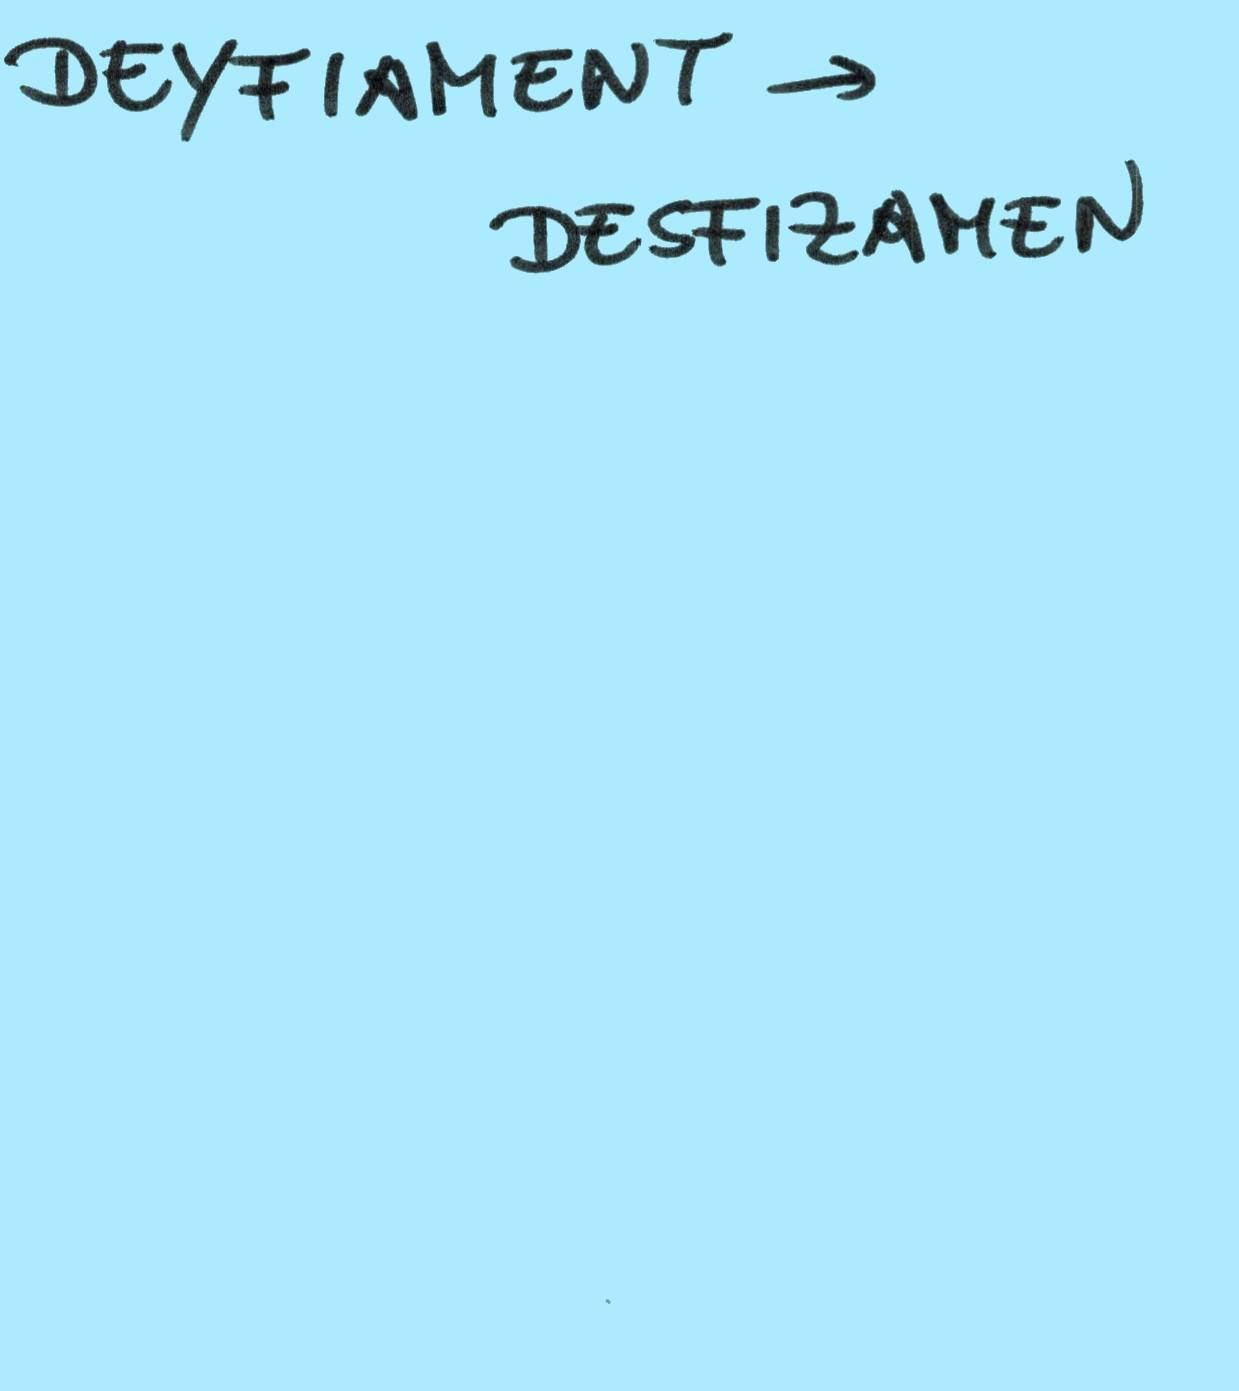 DEYFIAMENT →
DESFIZAMEN